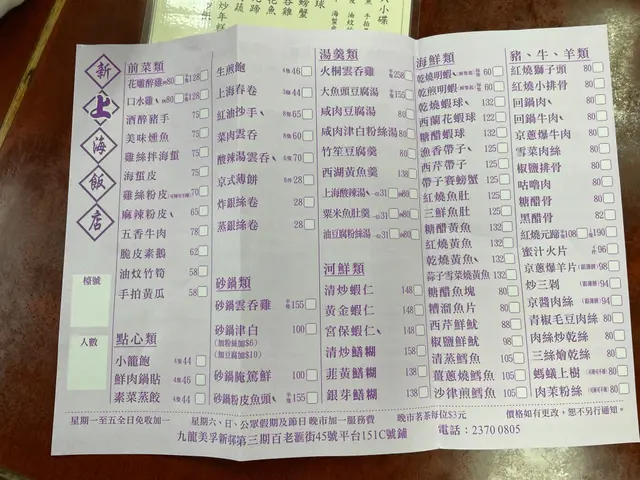 新上海飯店
檯號
人數
前菜類
花雕醉雞 例80 半隻128
口水雞 例80 半隻128
酒醉豬手 75
美味燻魚 75
雞絲拌海蜇 75
海蜇皮 75
雞絲粉皮 75
麻辣粉皮 65
五香牛肉 78
脆皮素鵝 62
油炆竹筍 58
手拍黃瓜 58
點心類
小籠飽 4隻 44
鮮肉鍋貼 4隻 46
素菜蒸餃 4隻 44
生煎飽 4隻 46
上海春卷 3條 44
紅油抄手 8隻 65
菜肉雲吞 6隻 60
酸辣湯雲吞 6隻 70
京式薄餅 8件 28
炸銀絲卷 28
蒸銀絲卷 28
砂鍋類
砂鍋雲吞雞 半隻 155
砂鍋津白 100
(加粉絲加$6)
(加豆腐加$10)
砂鍋醃篤鮮 100
砂鍋粉皮魚頭 半個 155
湯羹類
火桐雲吞雞 半隻 258
大魚頭豆腐湯 半個 155
咸肉豆腐湯 80
咸肉津白粉絲湯 80
竹笙豆腐羹 80
西湖黃魚羹 138
上海酸辣湯 一位31 80
粟米魚肚羹 一位31 80
油豆腐粉絲湯 一位31 80
河鮮類
清炒蝦仁 148
黃金蝦仁 148
宮保蝦仁 148
清炒鱔糊 158
韮黃鱔糊 138
銀芽鱔糊 138
海鮮類
乾燒明蝦 60
乾煎明蝦 60
乾燒蝦球 132
西蘭花蝦球 122
糖醋蝦球 132
漁香帶子 125
西芹帶子 125
帶子賽螃蟹 125
紅燒魚肚 125
三鮮魚肚 125
糖醋黃魚 132
紅燒黃魚 132
乾燒黃魚 132
蒜子雪菜燒黃魚 132
糖醋魚塊 80
糟溜魚片 80
西芹鮮魷 88
椒鹽鮮魷 98
清蒸鱈魚 105
薑蔥燒鱈魚 105
沙律煎鱈魚 105
豬、牛、羊類
紅燒獅子頭 80
紅燒小排骨 80
回鍋肉 80
回鍋牛肉 80
京蔥爆牛肉 80
雪菜肉絲 80
椒鹽排骨 80
咕嚕肉 80
糖醋骨 80
黑醋骨 82
紅燒元蹄 108 190
蜜汁火片 96
京蔥爆羊片 98
炒三剝 94
京醬肉絲 94
青椒毛豆肉絲 80
肉絲炒乾絲 80
三絲燴乾絲 80
螞蟻上樹 80
肉茉粉絲 80
星期一至五全日免收加一 星期六、日、公眾假期及節日 晚市加一服務費 晚市茗茶每位$3元 價格如有更改，恕不另行通知。
九龍美孚新邨第三期百老滙街45號平台151C號鋪 電話：2370 0805